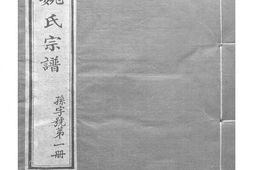 姚氏宗譜
孫字號第一册